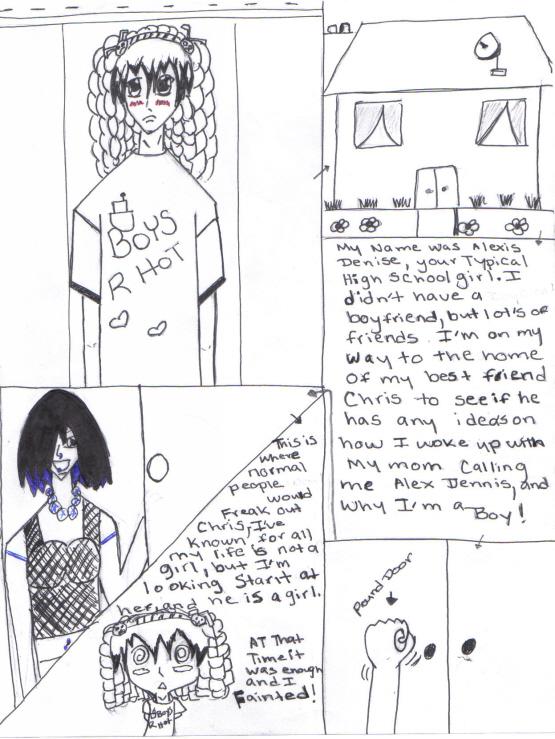 BOYS
R HOT
My Name was Alexis
Denise, your Typical
High School girl. I
didn't have a
boyfriend, but lot's of
friends. I'm on my
way to the home
of my best friend
Chris to see if he
has any ideas on
how I woke up with
My mom Calling
me Alex Dennis, and
why I'm a Boy!
Pound Door
This is
where
normal
people
would
Freak out
Chris, I've
known for all
my life is not a
girl, but I'm
looking Starit at
her, and he is a girl.
AT That
Time it
was enough
and I
Fainted!
Boys
R Hot